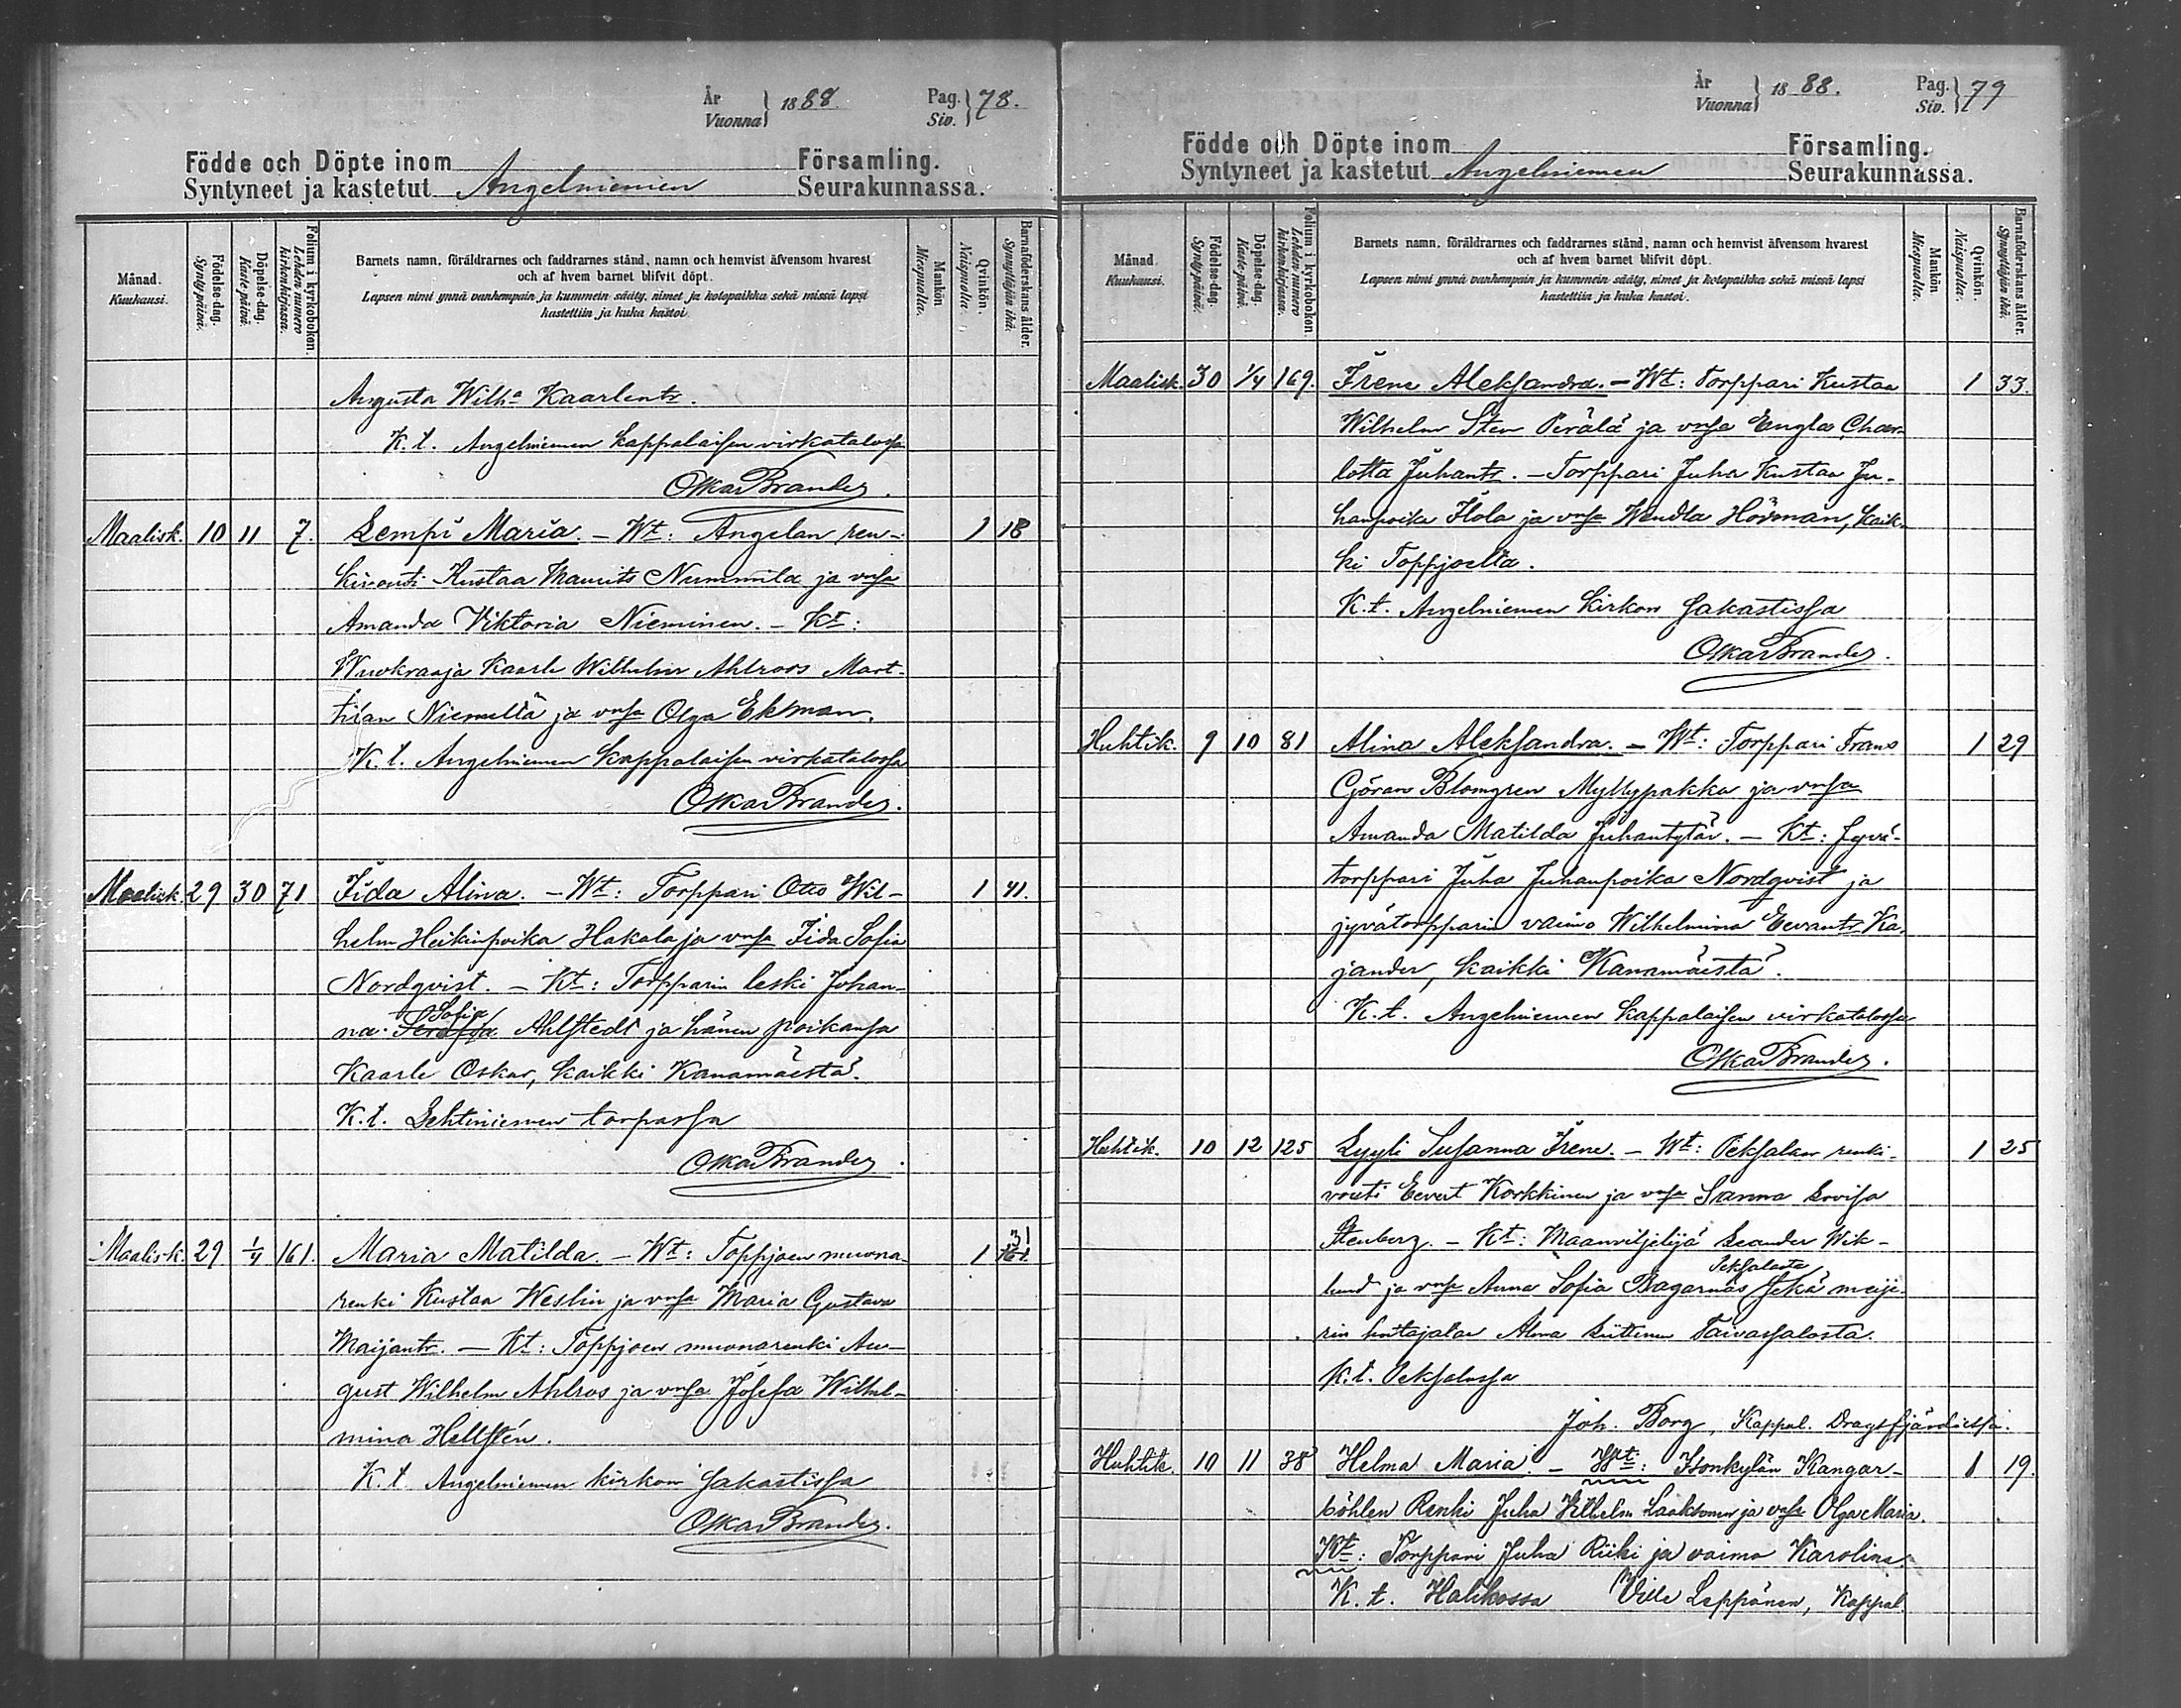 År
Vuonna } 1888. Pag.
Siv. } 78.
Födde och Döpte inom Församling.
Syntyneet ja kastetut Angelniemen Seurakunnassa.
Månad.
Kuukausi.
Födelse-dag.
Synty-päivä.
Döpelse-dag.
Kaste-päivä.
Folium i kyrkobokon.
Lehden numero
kirkonkirjassa.
Barnets namn, föräldrarnes och faddrarnes stånd, namn och hemvist äfvensom hvarest
och af hvem barnet blifvit döpt.
Lapsen nimi ynnä vanhempain ja kummein sääty, nimet ja kotopaikka sekä missä lapsi
kastettiin ja kuka kastoi.
Mankön.
Miespuolta.
Qvinkön.
Naispuolta.
Barnaföderskans ålder.
Synnyttäjän ikä.
Augusta Wilh:a Kaarlentr.
K. t. Angelniemen kappalaisen virkatalossa
Oskar Brander.
Maalisk. 10 11 7. Lempi Maria. – Wt: Angelan ren- 1 18
kivouti Kustaa Maurits Nummila ja vmsa
Amanda Viktoria Nieminen. – Kt:
Wuokraaja Kaarle Wilhelm Ahlroos Mart-
tilan Niemeltä ja vmsa Olga Ekman.
K. t. Angelniemen kappalaisen virkatalossa
Oskar Brander.
Maalisk. 29 30 71 Iida Alina. – Wt: Torppari Otto Wil- 1 41.
helm Heikinpoika Hakala ja vmsa Iida Sofia
Nordqvist. – Kt: Torpparin leski Johan-
Sofia
na Ahlstedt ja hänen poikansa
Kaarle Oskar, kaikki Kanamäestä.
K. t. Lehtiniemen torpassa
Oskar Brander.
Maalisk. 29 1/4 161. Maria Matilda. – Wt: Toppjoen muona- 1 31
renki Kustaa Weslin ja vmsa Maria Gustava
Maijantr. – Kt: Toppjoen muonarenki Au-
gust Wilhelm Ahlros ja vmsa Josefa Wilhel-
mina Hellstén.
K. t. Angelniemen kirkon sakastissa
Oskar Brander.
År
Vuonna } 1888. Pag.
Siv. } 79
Födde och Döpte inom Församling.
Syntyneet ja kastetut Angelniemen Seurakunnassa.
Månad.
Kuukausi.
Födelse-dag.
Synty-päivä.
Döpelse-dag.
Kaste-päivä.
Folium i kyrkobokon.
Lehden numero
kirkonkirjassa.
Barnets namn, föräldrarnes och faddrarnes stånd, namn och hemvist äfvensom hvarest
och af hvem barnet blifvit döpt.
Lapsen nimi ynnä vanhempain ja kummein sääty, nimet ja kotopaikka sekä missä lapsi
kastettiin ja kuka kastoi.
Mankön
Miespuolta.
Qvinkön.
Naispuolta.
Barnaföderskans ålder.
Synnyttäjän ikä.
Maalisk. 30 1/4 169. Irene Aleksandra. – Wt: Torppari Kustaa 1 33.
Wilhelm Sten Perälä ja vmsa Engla Char-
lotta Juhantr. – Torppari Juha Kustaa Ju-
hanpoika Ilola ja vmsa Wendla Hörman, kaik-
ki Toppjoelta.
K. t. Angelniemen kirkon sakastissa
Oskar Brander.
Huhtik. 9 10 81 Alina Aleksandra. – Wt: Torppari Frans 1 29
Göran Blomgren Myllypakka ja vmsa
Amanda Matilda Juhantytär. – Kt: Jyvä-
torppari Juha Juhanpoika Nordqvist ja
jyvätorpparin vaimo Wilhelmina Eevantr. Ka-
jander, kaikki Kanamäestä.
K. t. Angelniemen kappalaisen virkatalossa
Oskar Brander.
Huhtik. 10 12 125 Lyyli Susanna Irene. – Wt: Peksalan renki- 1 25
vouti Eevert Korkkinen ja vmsa Sanna Lovisa
Stenberg. – Kt: Maanviljelijä Leander Wik-
Peksalasta
lund ja vmsa Anna Sofia Bagarnäs sekä meije-
rin hoitajatar Alma Taivassalosta.
K. t. Peksalassa
Joh. Borg, Kappal. Dragsfjärdissä.
Huhtik. 10 11 38 Helma Maria. – Wt: Isonkylän Kangar- 1 19.
böhlen Renki Juha Vilhelm Laaksonen ja vmsa Olga Maria.
Kt: Torppari Juha Riiki ja vaimo Karolina.
K. t. Halikossa Ville Leppänen, Kappal.